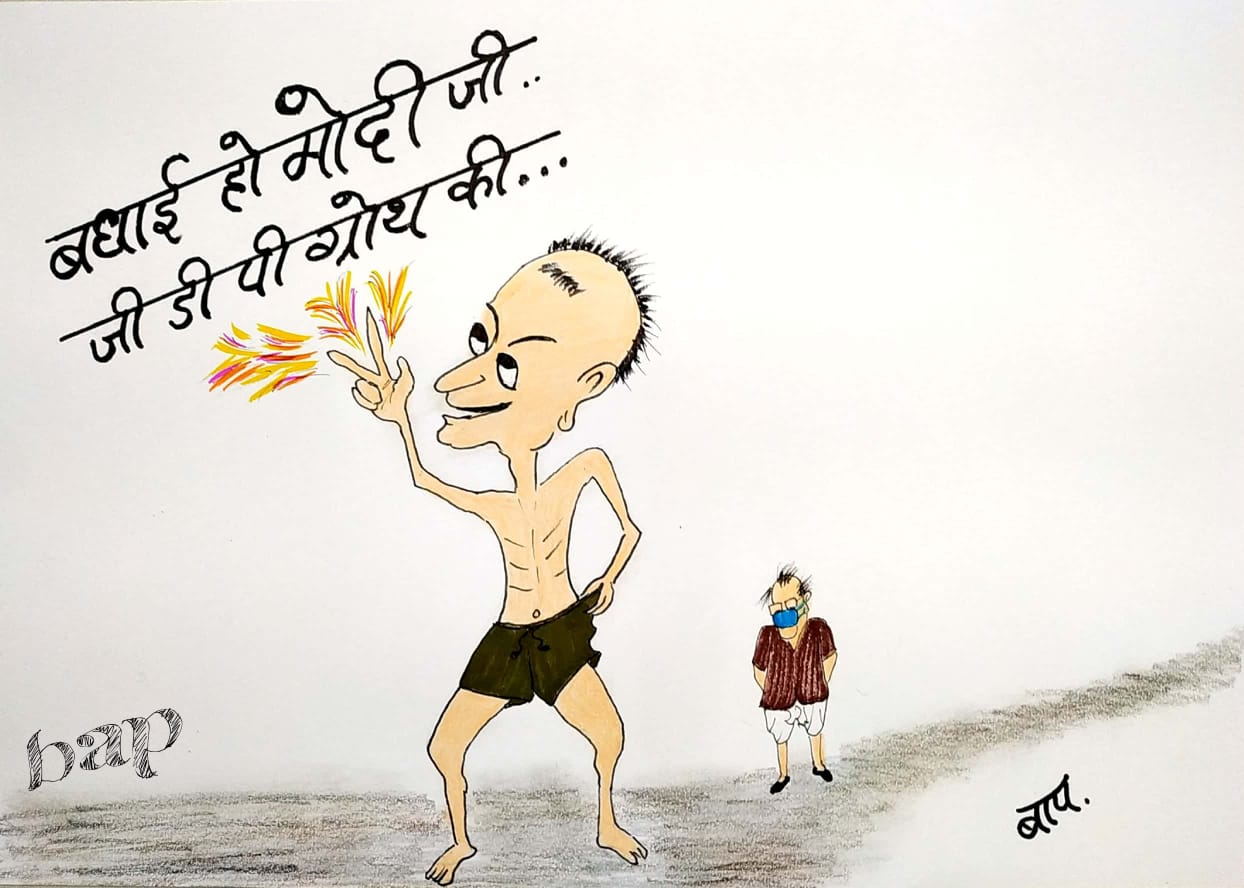 बधाई हो मोदी जी..
जी डी पी ग्रोथ की...
bap
बाप.